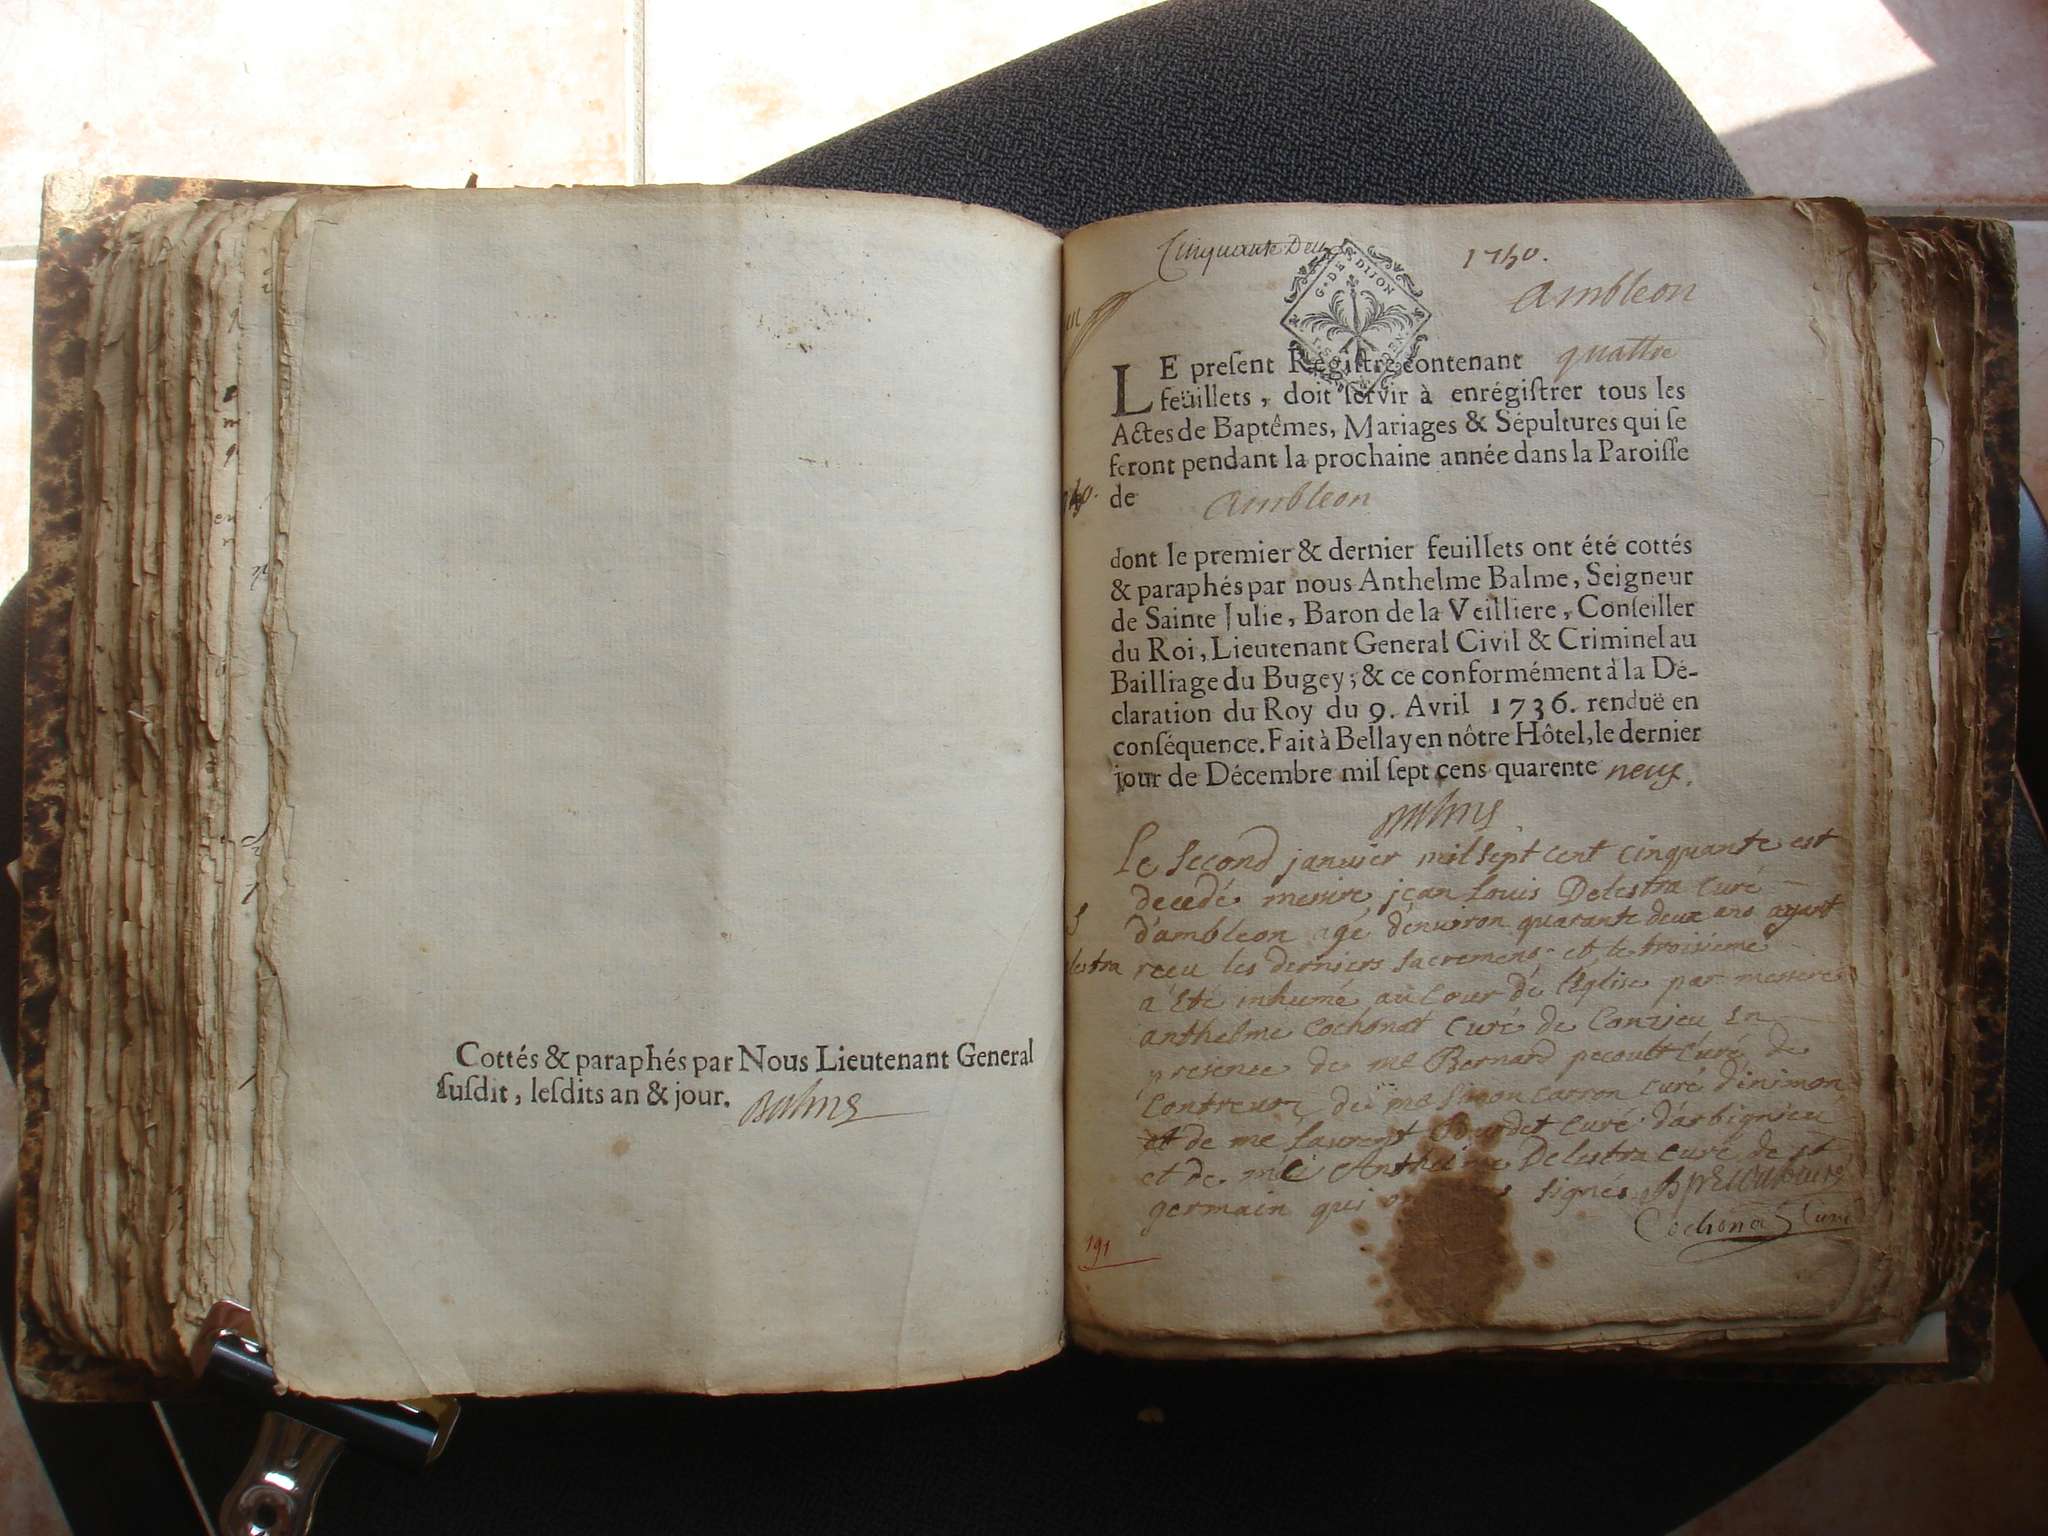 Cottés & paraphés par Nous Lieutenant General
susdit, lesdits an & jour. Balme
Cinquante Deux
1750.
Ambleon
G. DE DIJON
LE present Registre contenant quattre
feüillets, doit servir à enrégistrer tous les
Actes de Baptêmes, Mariages & Sépultures qui se
feront pendant la prochaine année dans la Paroisse
de Ambleon
dont le premier & dernier feuillets ont été cottés
& paraphés par nous Anthelme Balme, Seigneur
de Sainte Julie, Baron de la Veilliere, Conseiller
du Roi, Lieutenant General Civil & Criminel au
Bailliage du Bugey; & ce conformément à la Dé-
claration du Roy du 9. Avril 1736. renduë en
conséquence. Fait à Bellay en nôtre Hôtel, le dernier
jour de Décembre mil sept cens quarente neuf.
Balme
Le second janvier mil sept cent cinquante est
decedé messire jean Louis Delestra curé
d'ambleon agé d'environ quarante deux ans ayant
receu les derniers sacremens et le troisieme
a été inhumé au Cour de l'Eglise par messire
anthelme Cochonat curé de Conzieu en
presence de me Bernard pecoult Curé de
Contrevoz de me Simon carron curé d'inimon
et de me Laurent Bourdet curé d'arbignieu
et de me Anthelme Delestra curé de st
germain qui signés
Cochonat Curé
S
lestra
191